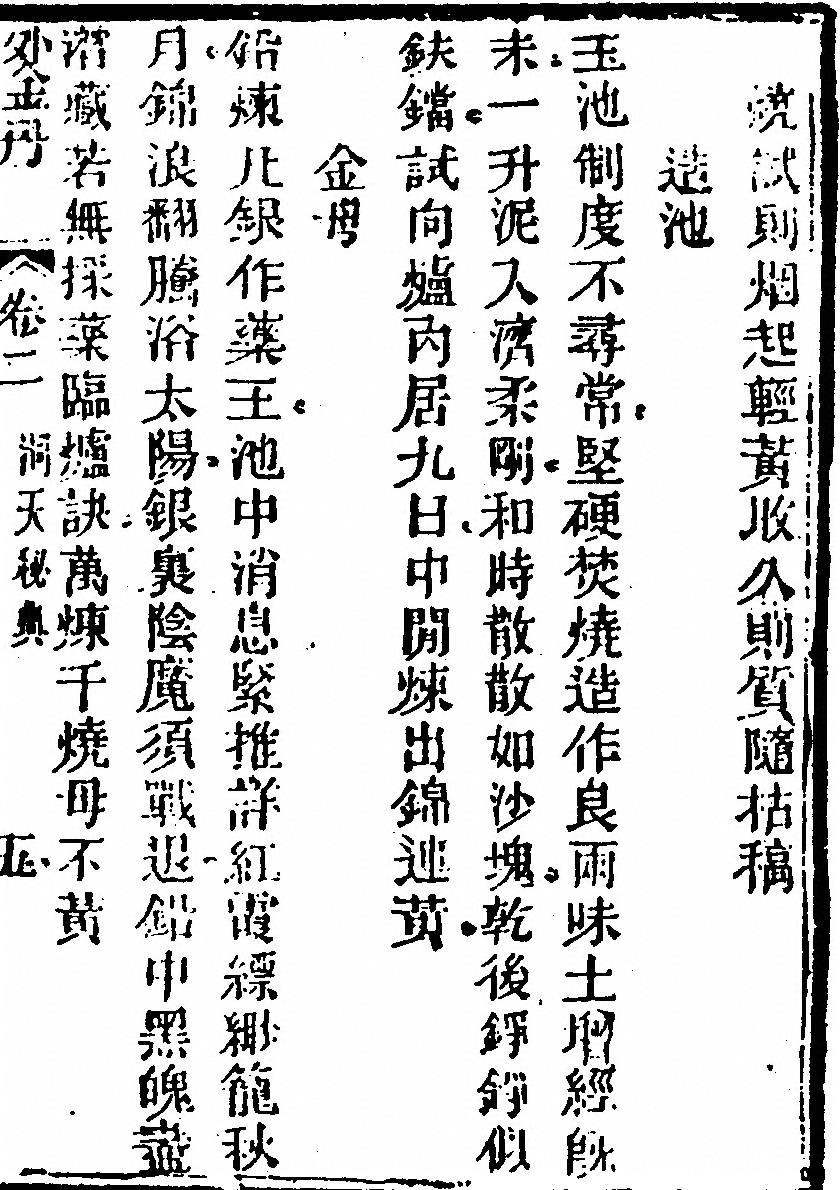 燒試則烟起輕黃收久則質隨枯稿
造池
玉池制度不尋常堅硬焚燒造作良兩味土增經餙
未一升泥入濟柔剛和時散散如沙塊乾後錚錚似
鈇鐺試向爐內居九日中閒煉出錦連黃
金母
鉛煉几銀作藥王池中消息緊推詳紅霞縹緲籠秋
月錦浪翻騰浴太陽銀裏陰魔須戰退鉛中黑魄盡
潛藏若無採藥臨爐訣萬煉千燒母不黃
外金丹 卷二 洞天秘典 五